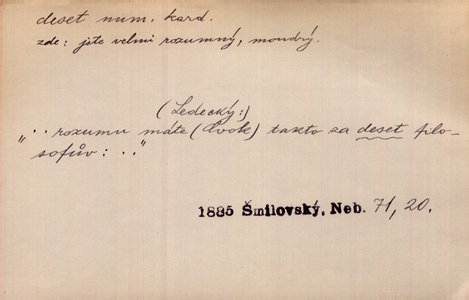 deset num. kard.
zde: jste velmi rozumný, moudrý.
(Ledecký:)
„ . . rozumu máte (Cvok) takto za deset filo-
sofův : . .“
1885 Šmilovský, Neb. 71, 20.